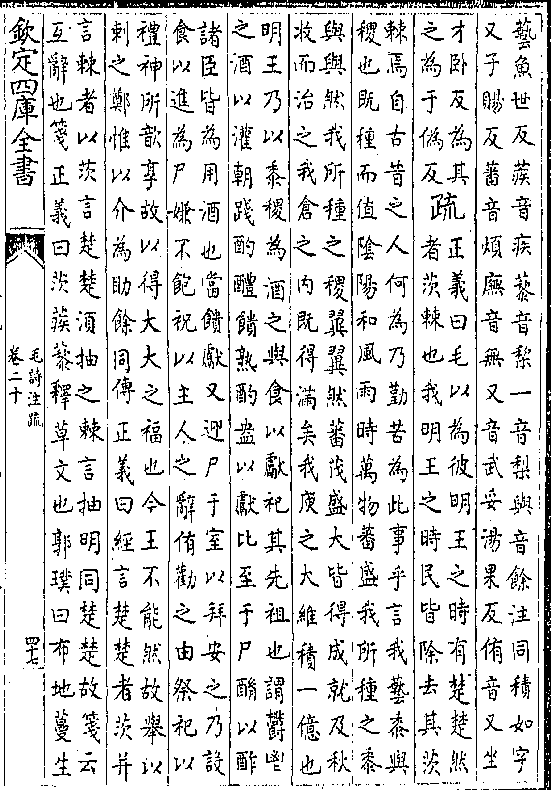 藝魚世反蒺音疾藜音棃一音梨與音餘注同積如字
又子賜反蕃音煩廡音無又音武妥湯果反侑音又坐
才卧反為其
之為于偽反
疏
正義曰毛以為彼明王之時有楚楚然
者茨棘也我明王之時民皆除去其茨
棘焉自古昔之人何為乃勤苦為此事乎言我藝黍與
稷也既種而值陰陽和風雨時萬物蕃盛我所種之黍
與與然我所種之稷翼翼然蕃茂盛大皆得成就及秋
收而治之我倉之內既得滿矣我庾之大維積一億也
明王乃以黍稷為酒之與食以獻祀其先祖也謂鬱鬯
之酒以灌朝踐酌醴饋熟酌盎以獻比至于尸酳以酢
諸臣皆為用酒也當饋獻又迎尸于室以拜安之乃設
食以進為尸嫌不飽祝以主人之辭侑勸之由祭祀以
禮神所歆享故以得大大之福也今王不能然故舉以
刺之鄭惟以介為助餘同傳正義曰經言楚楚者茨并
言棘者以茨言楚楚須抽之棘言抽明同楚楚故箋云
互辭也箋正義曰茨蒺藜釋草文也郭璞曰布地蔓生
欽定四庫全書
毛詩注疏
卷二十
四十七